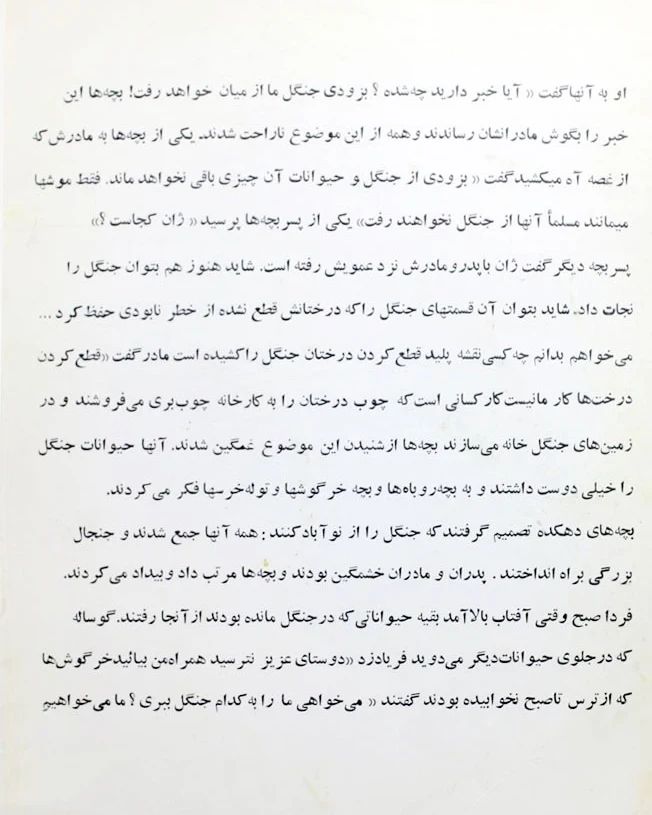 او به آنها گفت « آیا خبر دارید چه‌شده ؟ بزودی جنگل ما از میان خواهد رفت! بچه‌ها این
خبر را بگوش مادرانشان رساندند و همه از این موضوع ناراحت شدند. یکی از بچه‌ها به مادرش که
از غصه آه میکشید گفت « بزودی از جنگل و حیوانات آن چیزی باقی نخواهد ماند. فقط موشها
میمانند مسلماً آنها از جنگل نخواهند رفت» یکی از پسربچه‌ها پرسید « ژان کجاست ؟»
پسربچه دیگر گفت ژان با پدر و مادرش نزد عمویش رفته است. شاید هنوز هم بتوان جنگل را
نجات داد. شاید بتوان آن قسمتهای جنگل را که درختانش قطع نشده از خطر نابودی حفظ کرد ...
می‌خواهم بدانم چه کسی نقشه پلید قطع کردن درختان جنگل را کشیده است مادر گفت «قطع کردن
درخت‌ها کار ما نیست کار کسانی است که چوب درختان را به کارخانه چوب‌بری می‌فروشند و در
زمین‌های جنگل خانه می‌سازند بچه‌ها از شنیدن این موضوع غمگین شدند. آنها حیوانات جنگل
را خیلی دوست داشتند و به بچه‌روباه‌ها و بچه خرگوشها و توله‌خرسها فکر می‌کردند.
بچه‌های دهکده تصمیم گرفتند که جنگل را از نو آباد کنند : همه آنها جمع شدند و جنجال
بزرگی براه انداختند . پدران و مادران خشمگین بودند و بچه‌ها مرتب داد و بیداد می‌کردند.
فردا صبح وقتی آفتاب بالا آمد بقیه حیواناتی که در جنگل مانده بودند از آنجا رفتند. گوساله
که در جلوی حیوانات دیگر می‌دوید فریاد زد «دوستای عزیز نترسید همراه‌من بیائید خرگوش‌ها
که از ترس تا صبح نخوابیده بودند گفتند « می‌خواهی ما را به کدام جنگل ببری ؟ ما می‌خواهیم